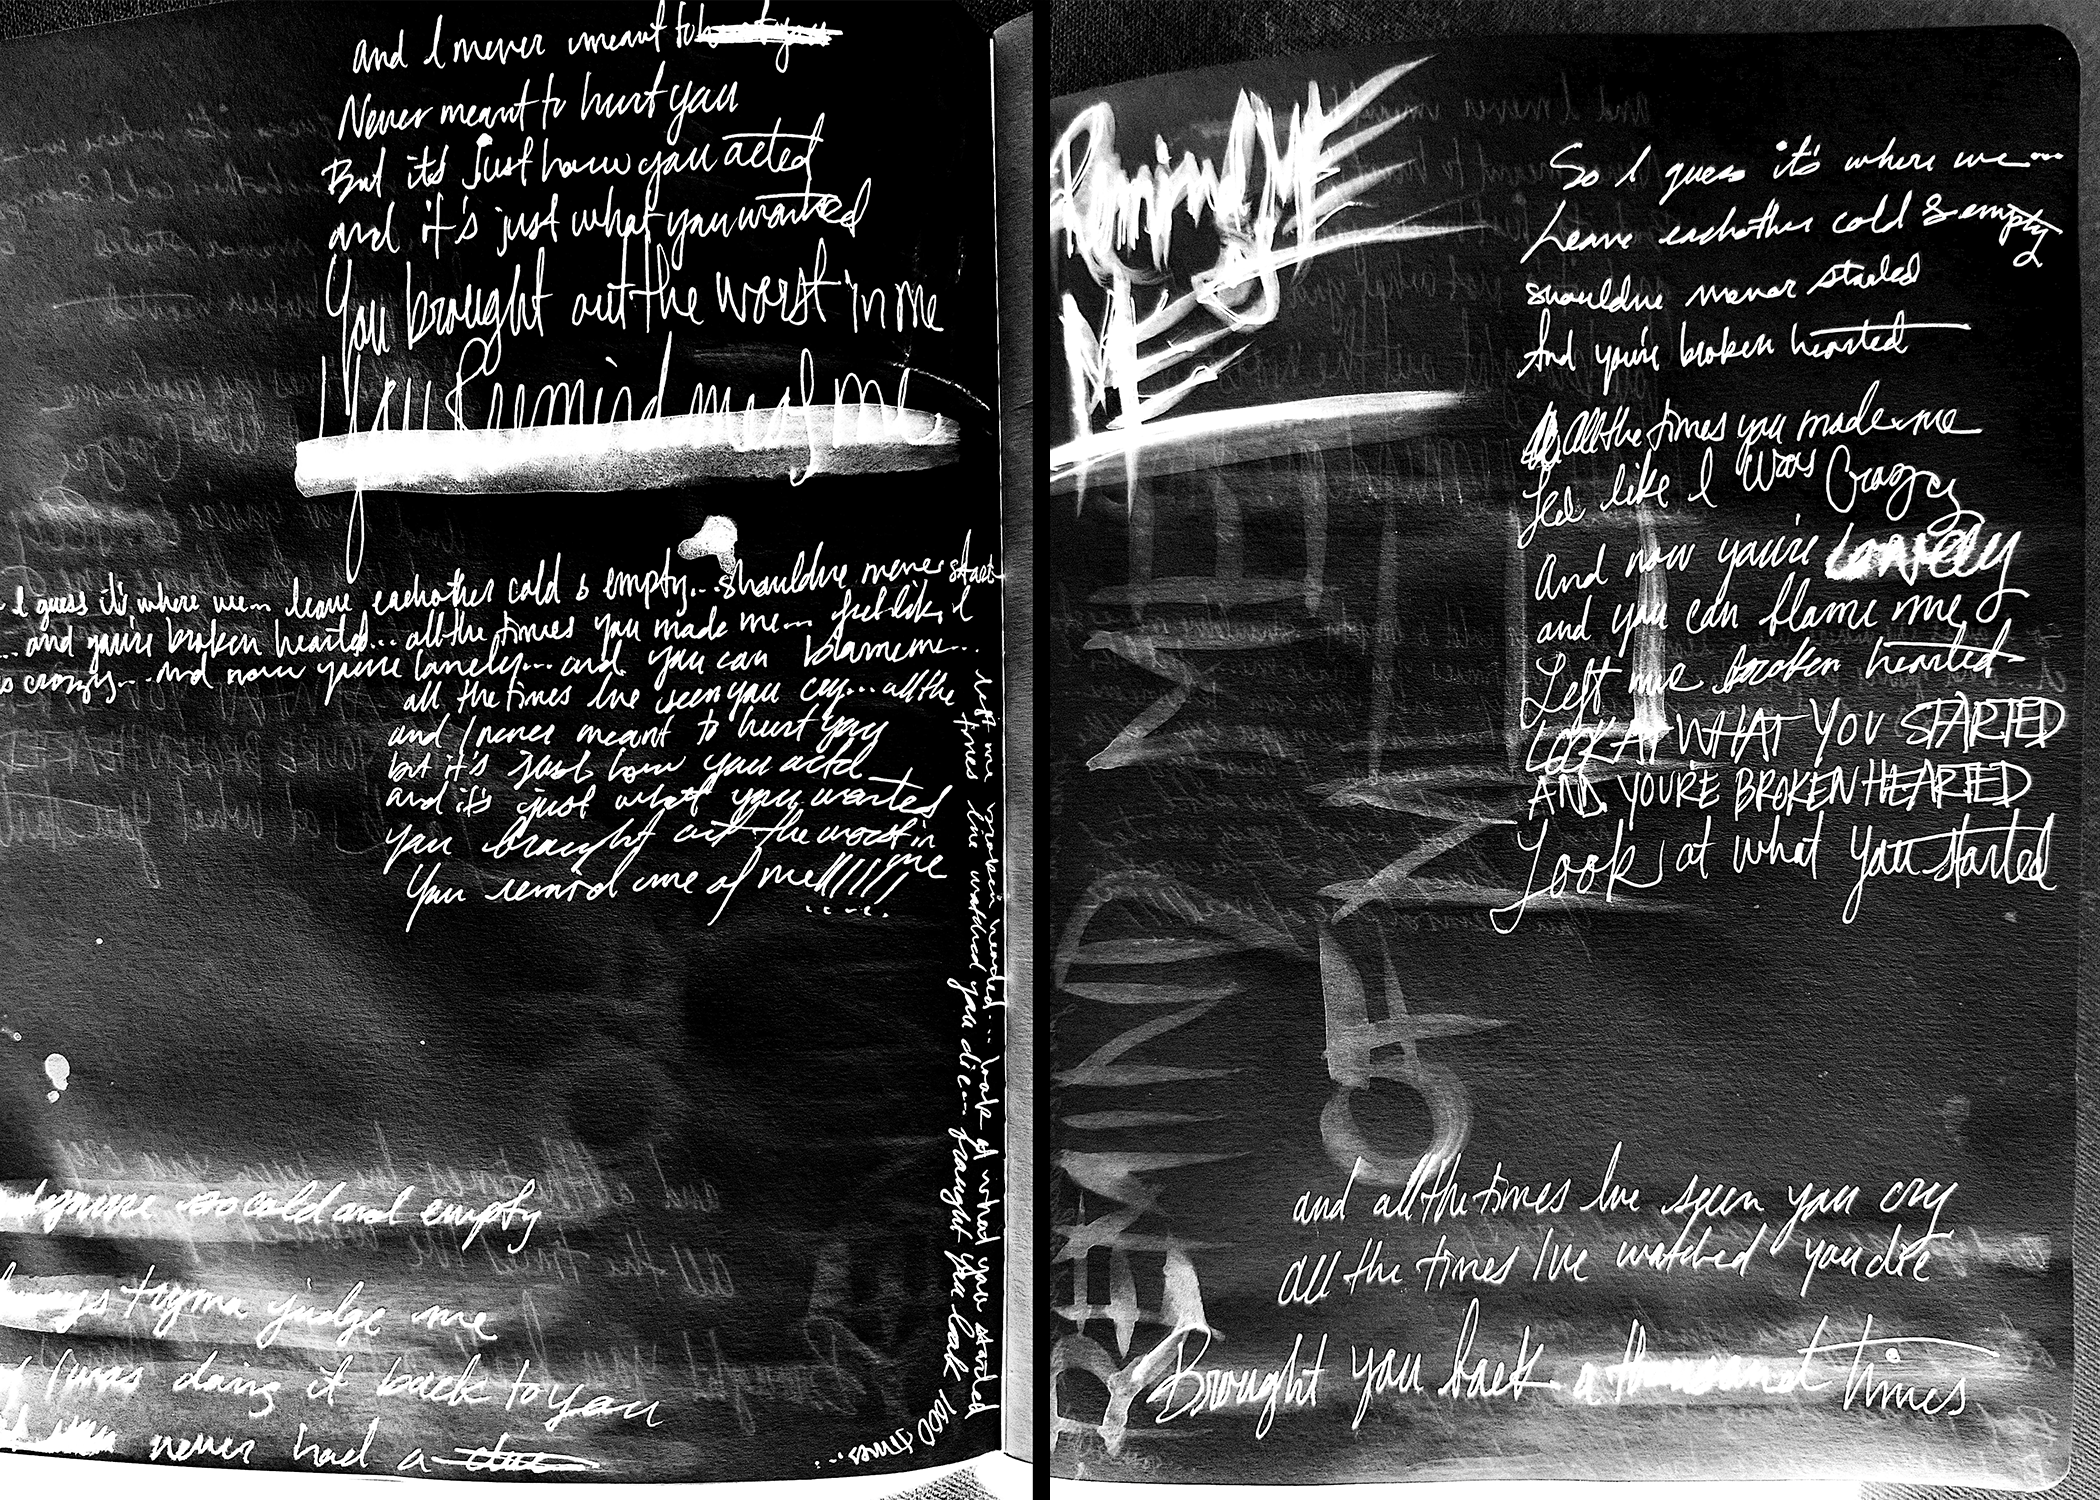 and I never meant to hurt you
Never meant to hurt you
But it's just how you acted
and it's just what you wanted
You brought out the worst in me
You remind me of me
I guess it's where we... leave eachother cold & empty... shouldve never start
... and you're broken hearted... all the times you made me... feel like I
crazy... And now you're lonely... and you can blame me...
all the times Ive seen you cry... all the
and I never meant to hurt you
but it's just how you acted
and it's just what you wanted
you brought out the worst in me
You remind me of me!!!!!!
left me broken hearted... look at what you started
times Ive watched you die... brought you back 1000 times...
so cold and empty
tryna judge me
I was doing it back to you
never had a clue
Remind Me
OF
ME
So I guess it's where we...
Leave eachother cold & empty
shouldve never started
And you're broken hearted
All the times you made me
feel like I was Crazy
And now you're lonely
and you can blame me
Left me broken hearted
LOOK AT WHAT YOU STARTED
AND YOU'RE BROKEN HEARTED
Look at what you started
REMIND ME
OF ME
and all the times Ive seen you cry
all the times I've watched you die
Brought you back a thousand times